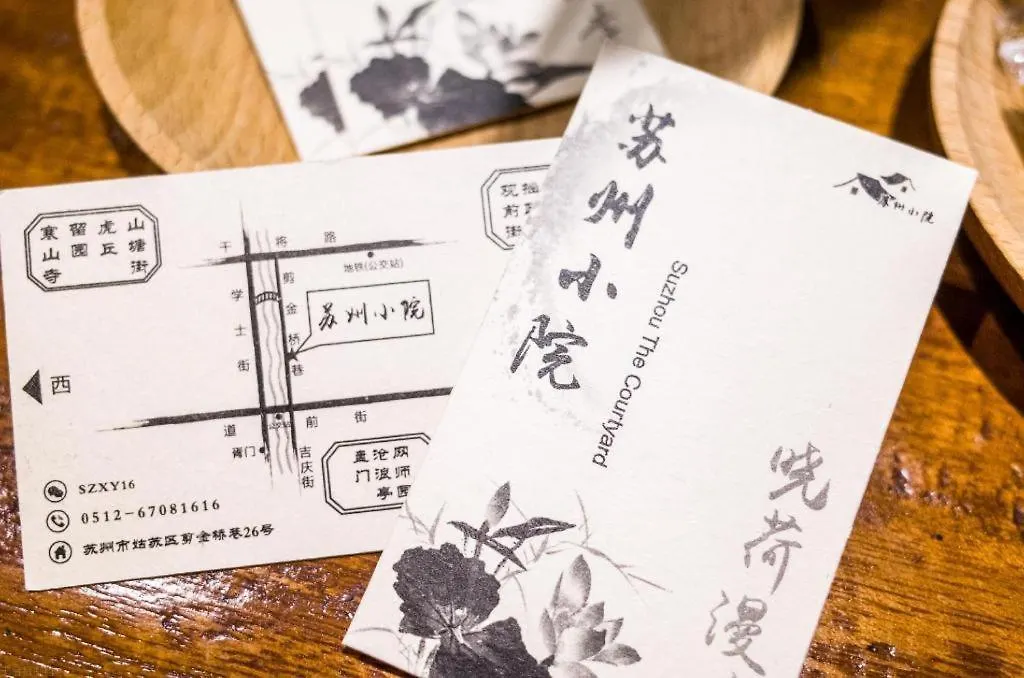 山塘街
虎丘
留园
寒山寺
观前
干将路
地铁(公交站)
学士街
剪金桥巷
苏州小院
西
道前街
公交站
胥门
吉庆街
网师园
沧浪亭
盘门
SZXY16
0512-67081616
苏州市姑苏区剪金桥巷26号
苏州小院
Suzhou The Courtyard
苏州小院
荷漫